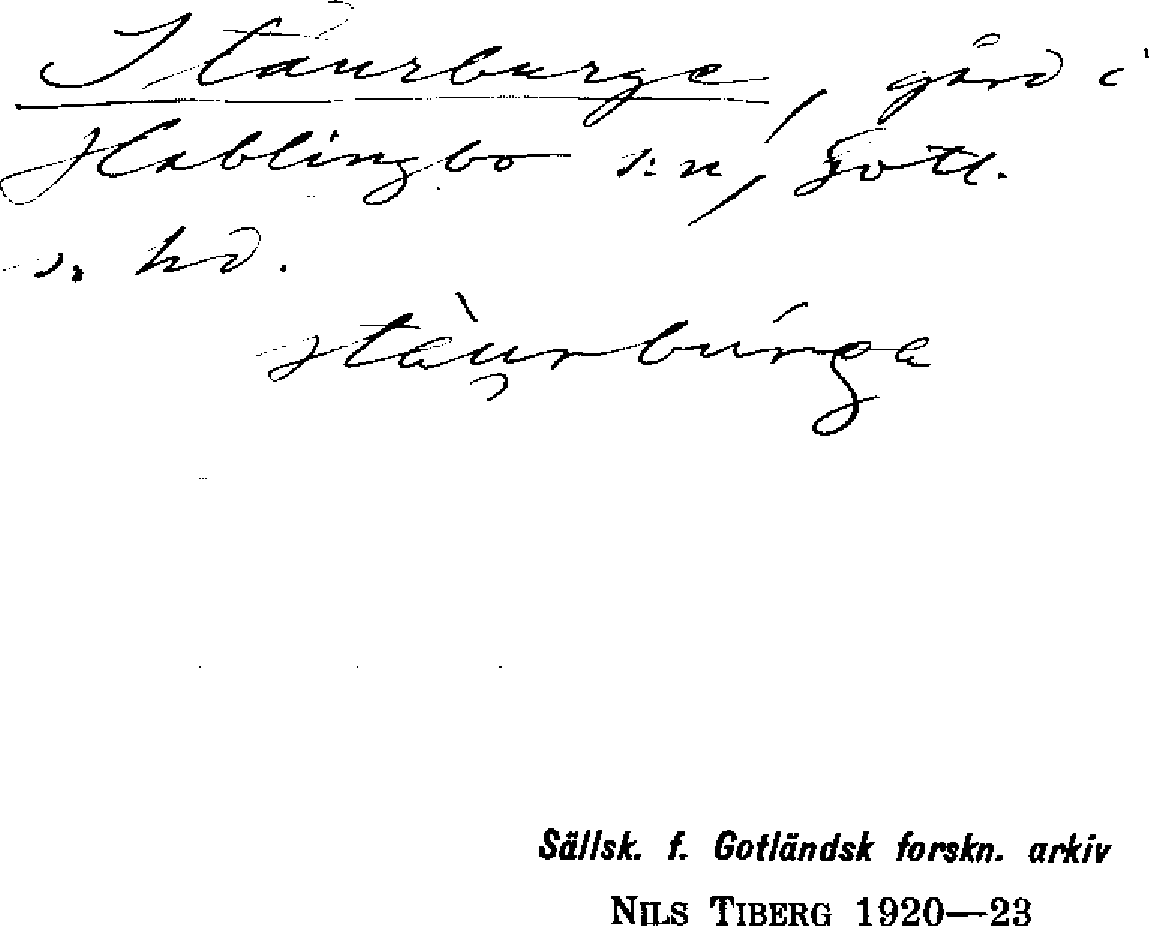 Staurburge, gård i
Hablingbo s:n, Gotl.
s. hd.
stàu̯rbúrga
Sällsk. f. Gotländsk forskn. arkiv
NILS TIBERG 1920—23